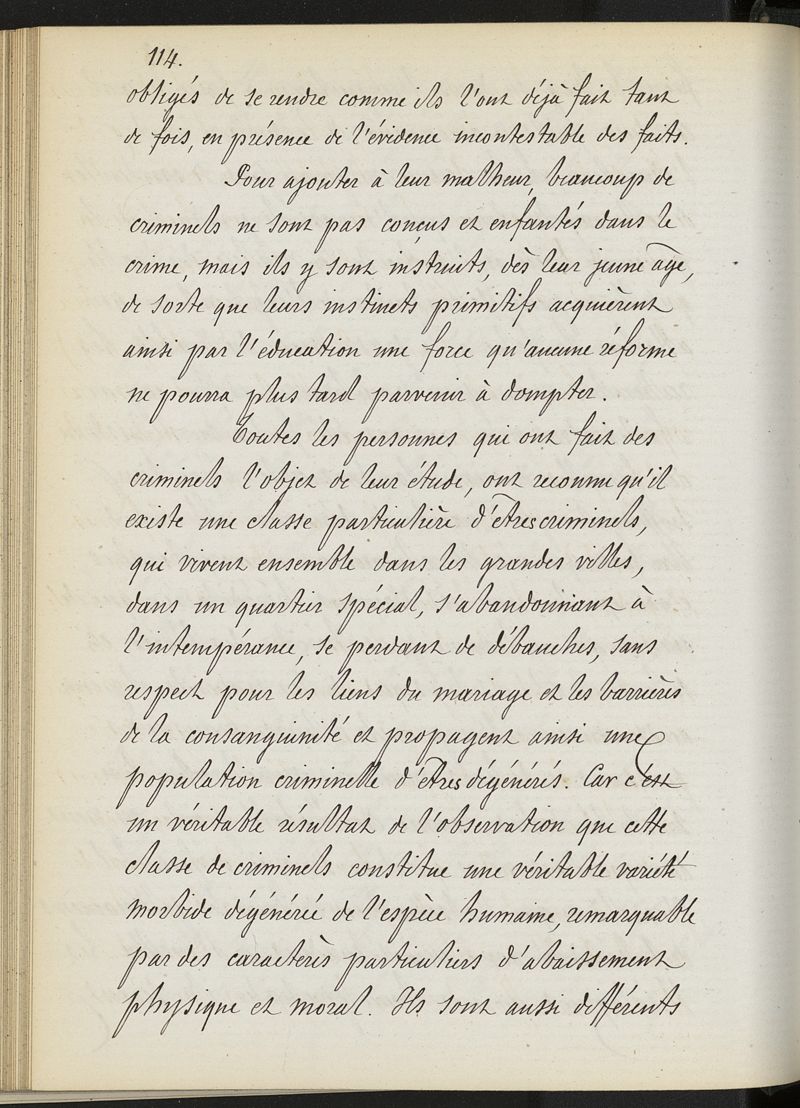 114.
obligés de se rendre comme ils l'ont déjà fait tant
de fois, en présence de l'évidence incontestable des faits.
Pour ajouter à leur malheur, beaucoup de
criminels ne sont pas conçus et enfantés dans le
crime, mais ils y sont instruits, dès leur jeune âge,
de sorte que leurs instincts primitifs acquièrent
ainsi par l'éducation une force qu'aucune réforme
ne pourra plus tard parvenir à dompter.
Toutes les personnes qui ont fait des
criminels l'objet de leur étude, ont reconnu qu'il
existe une classe particulière d'êtres criminels,
qui vivent ensemble dans les grandes villes,
dans un quartier spécial, s'abandonnant à
l'intempérance, se perdant de débauches, sans
respect pour les liens du mariage et les barrières
de la consanguinité et propagent ainsi une
population criminelle d'êtres dégénérés. Car c'est
un véritable résultat de l'observation que cette
classe de criminels constitue une véritable variété
morbide dégénérée de l'espèce humaine, remarquable
par des caractères particuliers d'abaissement
physique et moral. Ils sont aussi différents